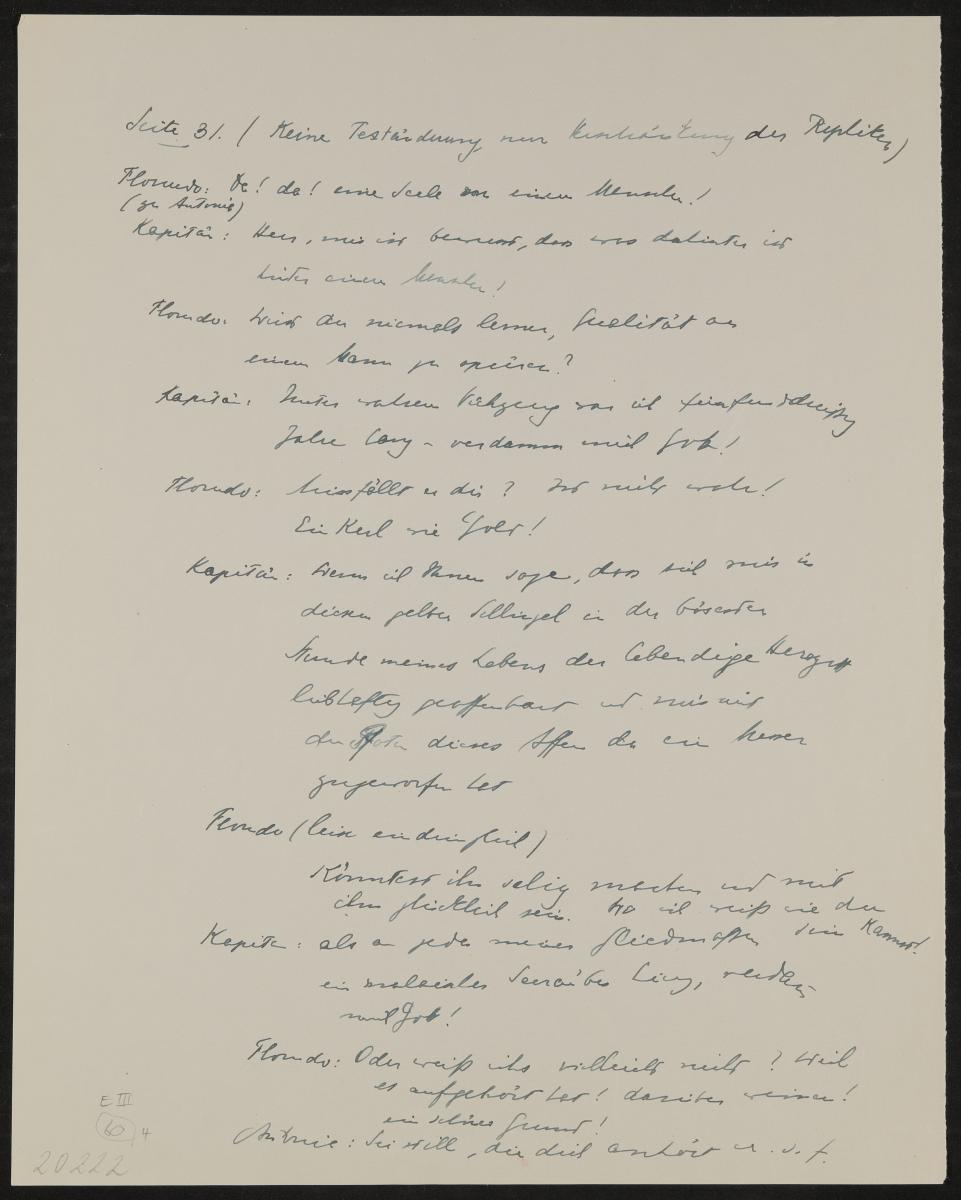 Seite 31. (Keine Textänderung nur der Repliken)
Florindo: Da! da! eine Seele von einem Menschen!
(zu Antonie)
Kapitän: Herr, mir ist bewusst, dass was dahinter ist
hinter einem Menschen!
Florindo: Wirst du niemals lernen, Qualität an
einem Mann zu spüren?
Kapitän: Unter war ich
Jahre lang – verdamm mich Gott!
Florindo: Missfällt er dir? Ist nicht wahr!
Ein Kerl wie Gold!
Kapitän: Wenn ich Ihnen sage, dass sich mir in
diesem gelben Schlingel in der bösesten
Stunde meines Lebens der lebendige Herrgott
leibhaftig geoffenbart und mir mit
den Pfoten dieses Affen da ein Messer
zugeworfen hat
Florindo (leise eindringlich)
Könntest ihn selig machen und mit
ihm glücklich sein. Wo ich weiß wie du
sein kannst!
Kapitän: als an jeder meiner Gliedmassen
ein malaiischer Seeräuber hing, verdamm
mich Gott!
Florindo: Oder weiß ichs vielleicht nicht? Weil
es aufgehört hat! darüber weinen!
ein schöner Grund!
Antonie: Sei still, die dich anhört u. s. f.
E III
60 4
20222